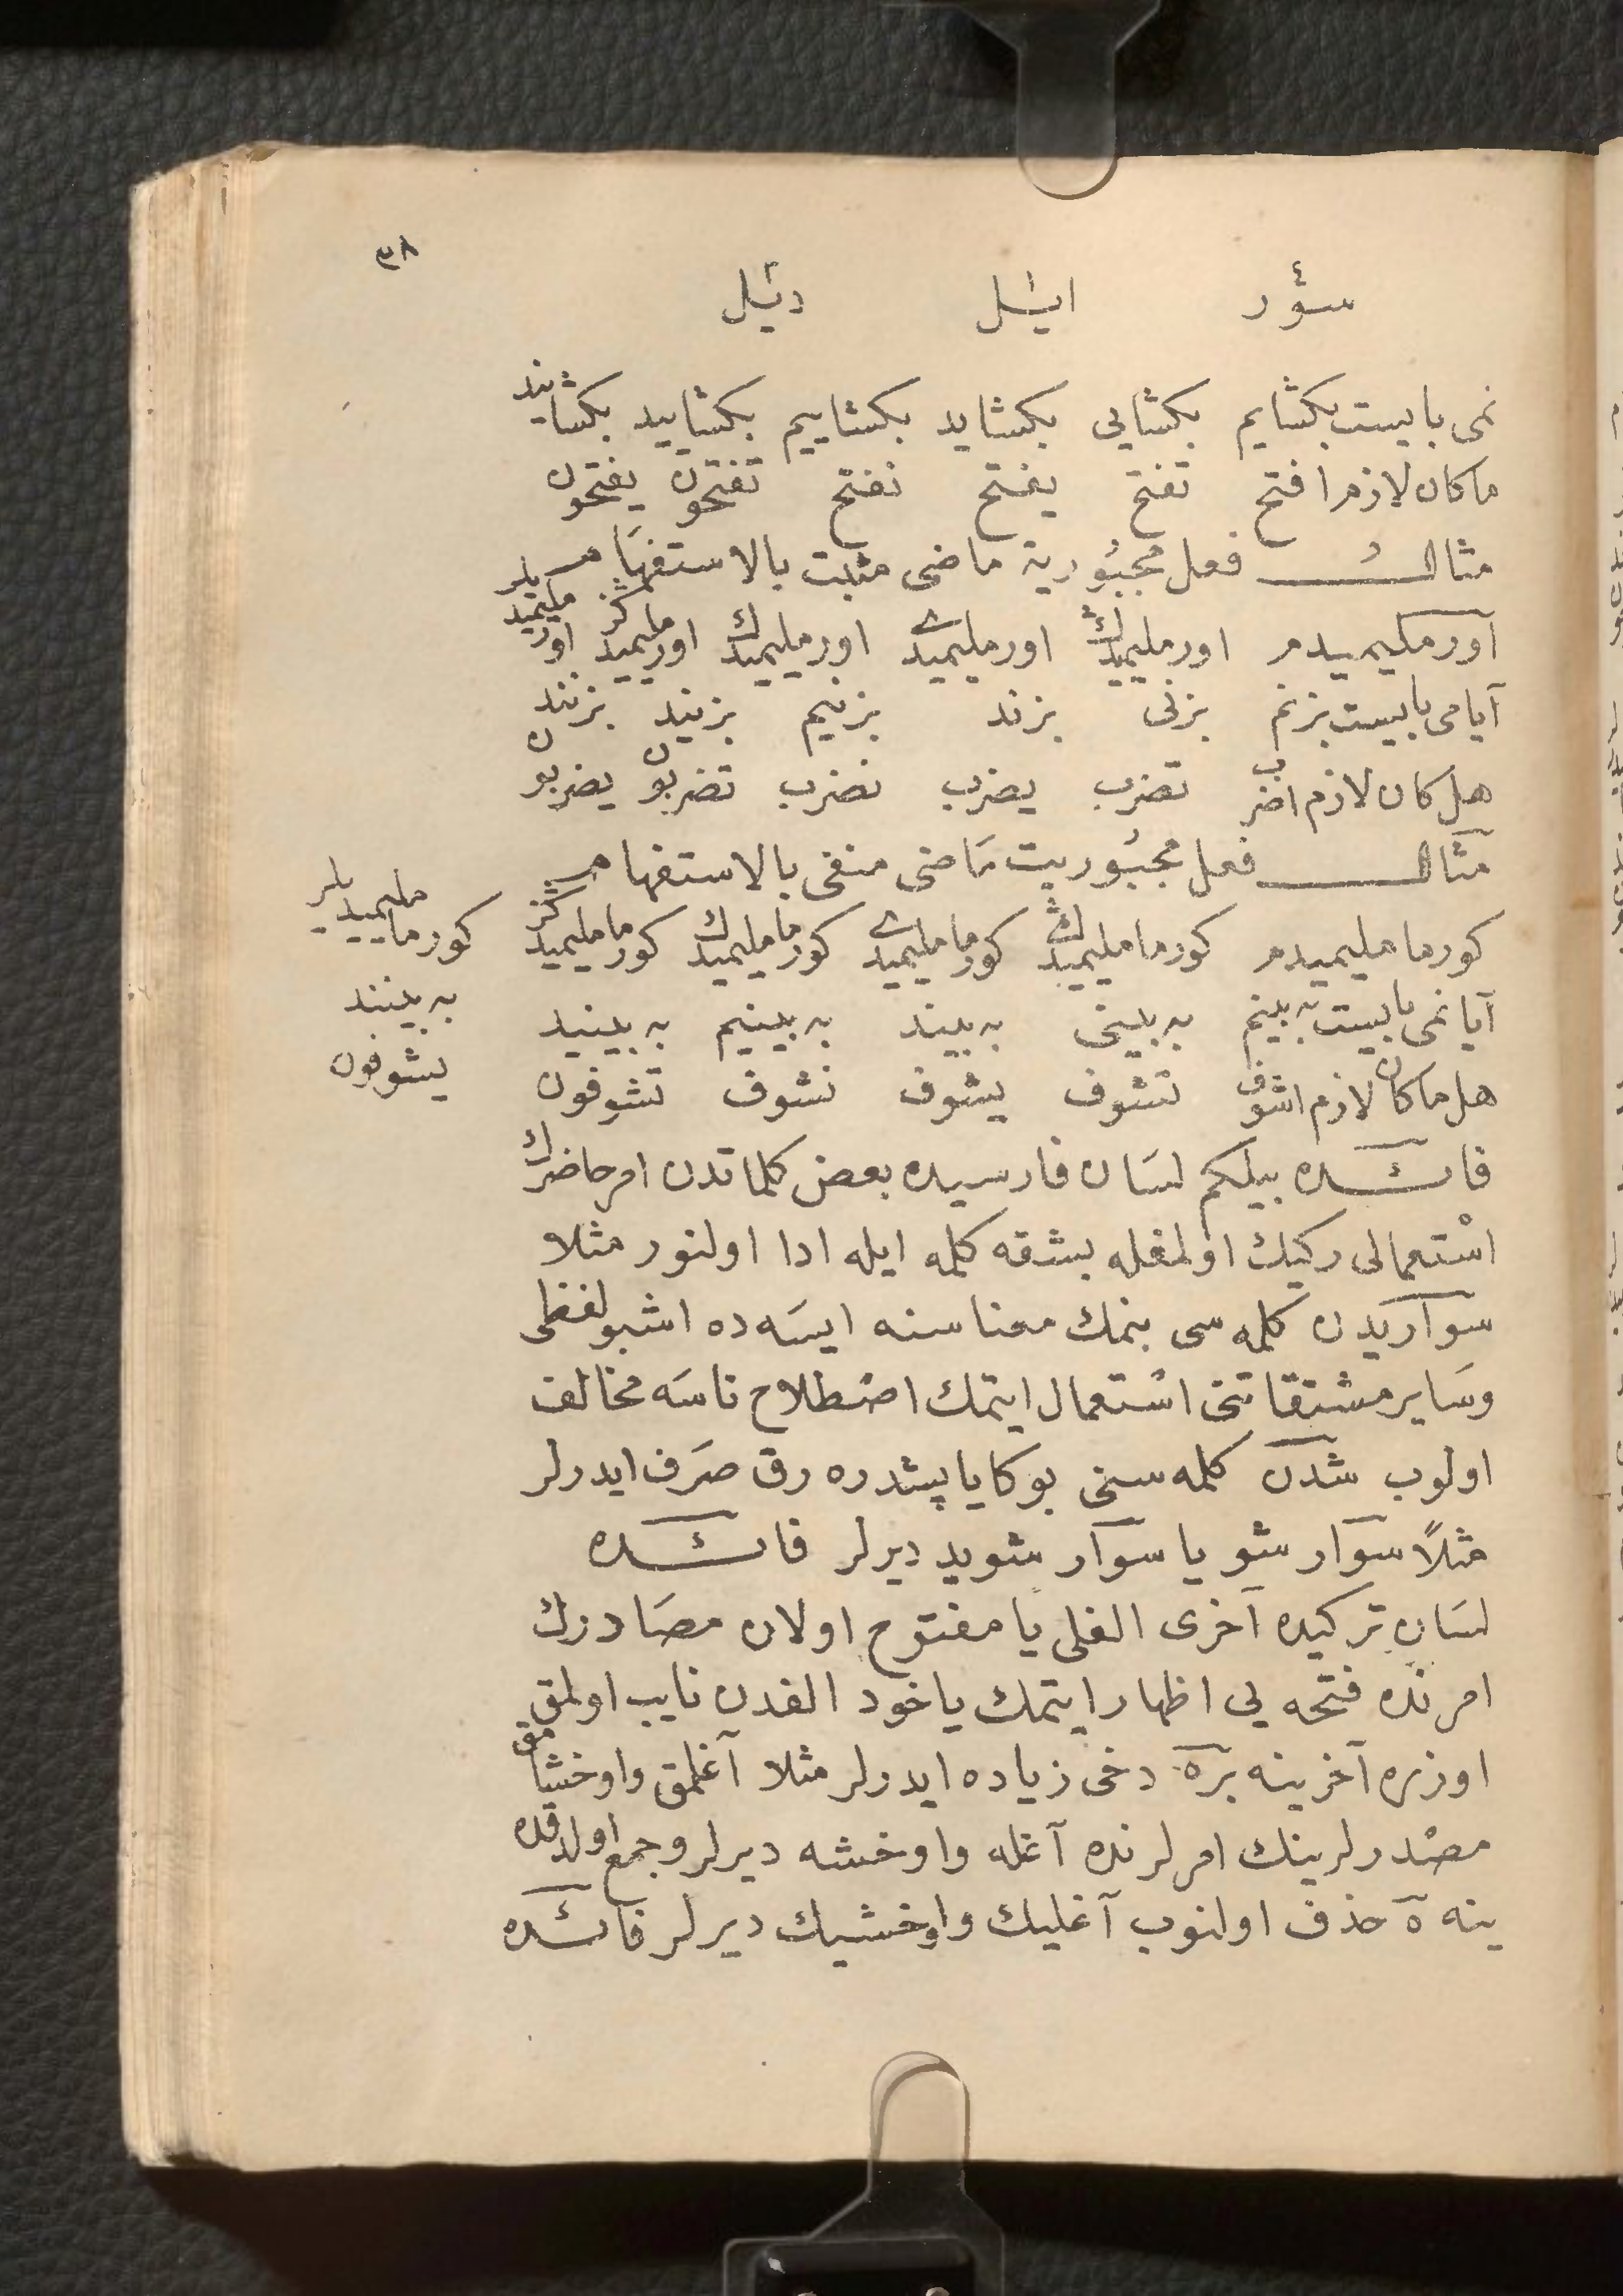 ٣٨
سؤر ايشل دئيل
نمى بايست بكشايم بكشايى بكشايد بكشاييم بكشاييد بكشايند
ما كان لازم افتح تفتح يفتح نفتح تفتحون يفتحون
مثال فعل مجبورية ماضى مثبت بالاستفهام
اورمليميدم اورمليميدك اورمليميدى اورمليميدك اورمليميدكز اورمليميديلر
آيا مى بايست بزنم بزنى بزند بزنيم بزنيد بزنند
هل كان لازم اضرب تضرب يضرب نضرب تضربون يضربون
مثال فعل مجبوريت ماضى منفى بالاستفهام
كورمامليميدم كورمامليميدك كورمامليميدى كورمامليميدك كورمامليميدكز كورمامليميديلر
آيا نمى بايست به بينم به بينى به بيند به بينيم به بينيد به بينند
هل ما كان لازم اشوف تشوف يشوف نشوف تشوفون يشوفون
فائده بيلكم لسان فارسيده بعض كلماتدن امر حاضرك
استعمالى ركيك اولمغله بشقه كلمه ايله ادا اولنور مثلا
سواريدن كلمه سى بنمك معناسنه ايسه ده اشبو لفظى
وساير مشتقاتنى استعمال ايتمك اصطلاح ناسه مخالف
اولوب شدن كلمه سنى بوكا ياپشدره رق صرف ايدرلر
مثلاً سوار شو يا سوار شويد ديرلر فائده
لسان تركيده آخرى الفلى يا مفتوح اولان مصادرك
امرنده فتحه يى اظهار ايتمك ياخود الفدن نايب اولمق
اوزره آخرينه بر ه دخى زياده ايدرلر مثلا آغلمق واوخشامق
مصدرلرينك امرلرنده آغله واوخشه ديرلر وجمع اولدقده
ينه ه حذف اولنوب آغليك واوخشيك ديرلر فائده